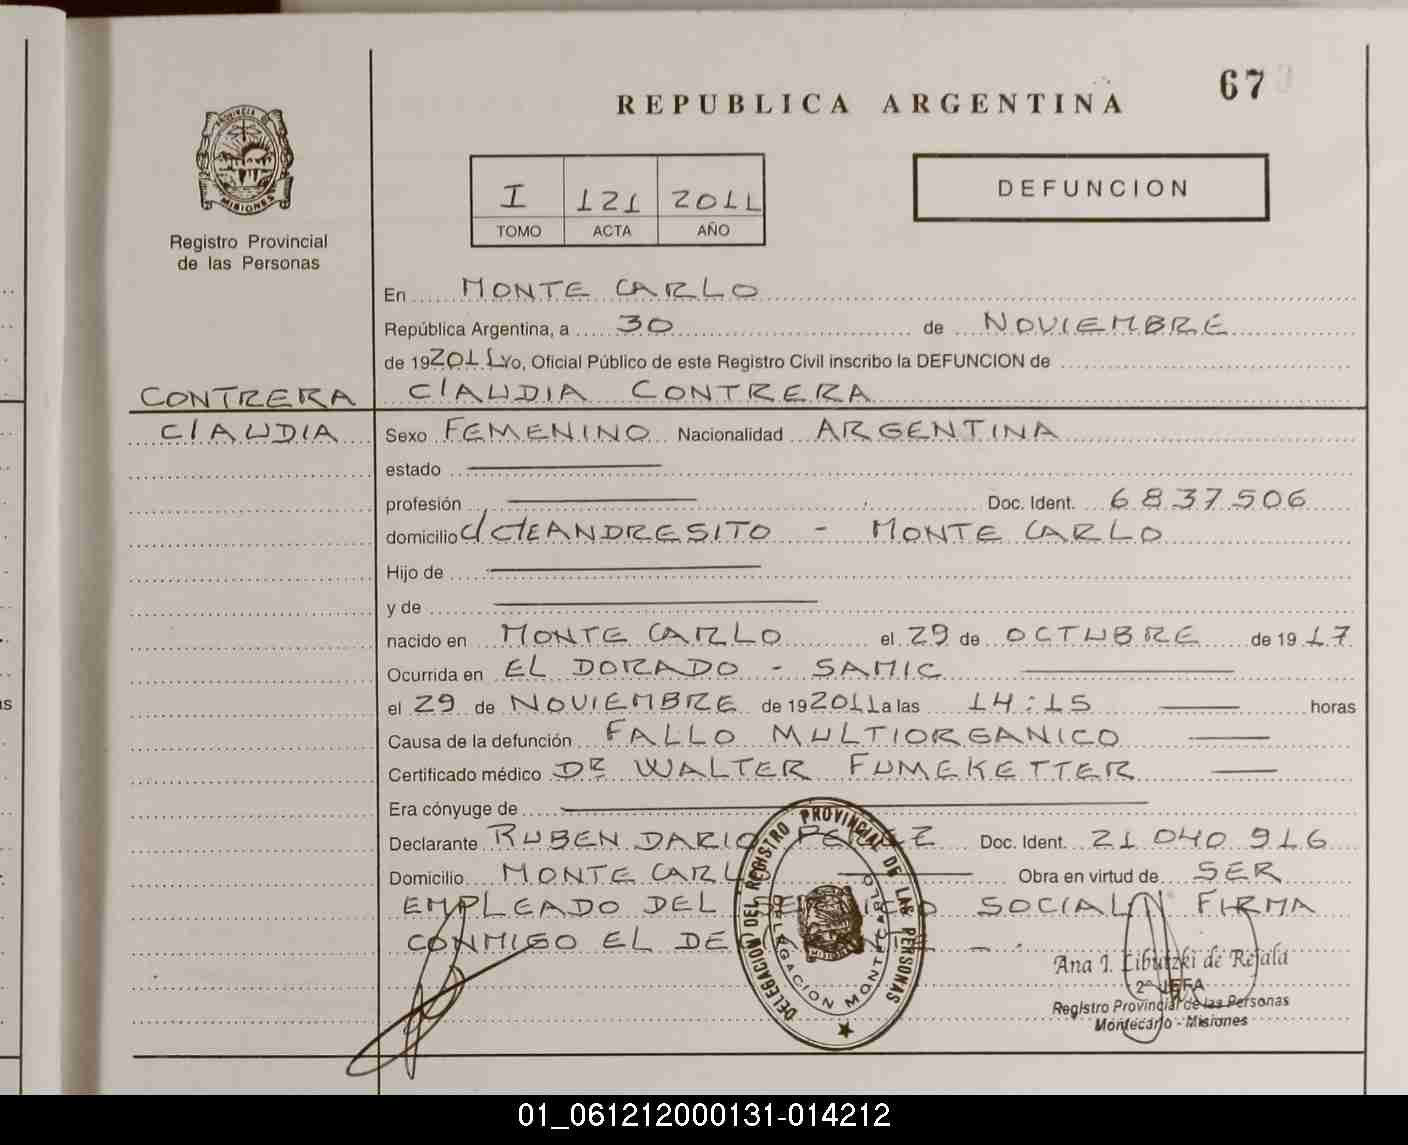 67
REPUBLICA ARGENTINA
PROVINCIA DE
MISIONES
Registro Provincial
de las Personas
DEFUNCION
I 121 2011
TOMO ACTA AÑO
En MONTE CARLO
República Argentina, a 30 de NOVIEMBRE
de 192011 Yo, Oficial Público de este Registro Civil inscribo la DEFUNCION de
CONTRERA CLAUDIA CONTRERA
CLAUDIA Sexo FEMENINO Nacionalidad ARGENTINA
estado
profesión Doc. Ident. 6837506
domicilio ANDRESITO - MONTE CARLO
Hijo de
y de
nacido en MONTE CARLO el 29 de OCTUBRE de 19 17
Ocurrida en EL DORADO - SAMIC
el 29 de NOVIEMBRE de 192011 a las 14:15 horas
Causa de la defunción FALLO MULTIORGANICO
Certificado médico DR WALTER FUMEKETTER
Era cónyuge de
Declarante RUBEN DARIO Doc. Ident. 21 040 916
Domicilio MONTE CARLO Obra en virtud de SER
EMPLEADO DEL SERVICIO SOCIAL FIRMA
CONMIGO EL
DELEGACION DEL REGISTRO PROVINCIAL DE LAS PERSONAS
DELEGACION MONTECARLO
Ana I. Libutzki de Rejala
2ª JEFA
Registro Provincial de las Personas
Montecarlo - Misiones
01_061212000131-014212